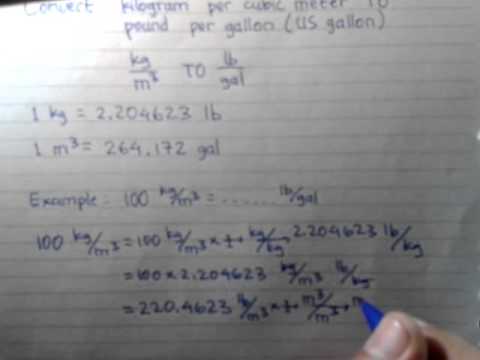 Convert kilogram per cubic meter to
pound per gallon (US gallon)
kg/m³ TO lb/gal
1 kg = 2.204623 lb
1 m³ = 264.172 gal
Example: 100 kg/m³ = ....... lb/gal
100 kg/m³ = 100 kg/m³ × 1 × kg/kg × 2.204623 lb/kg
= 100 × 2.204623 kg/m³ lb/kg
= 220.4623 lb/m³ × 1 × m³/m³ ×